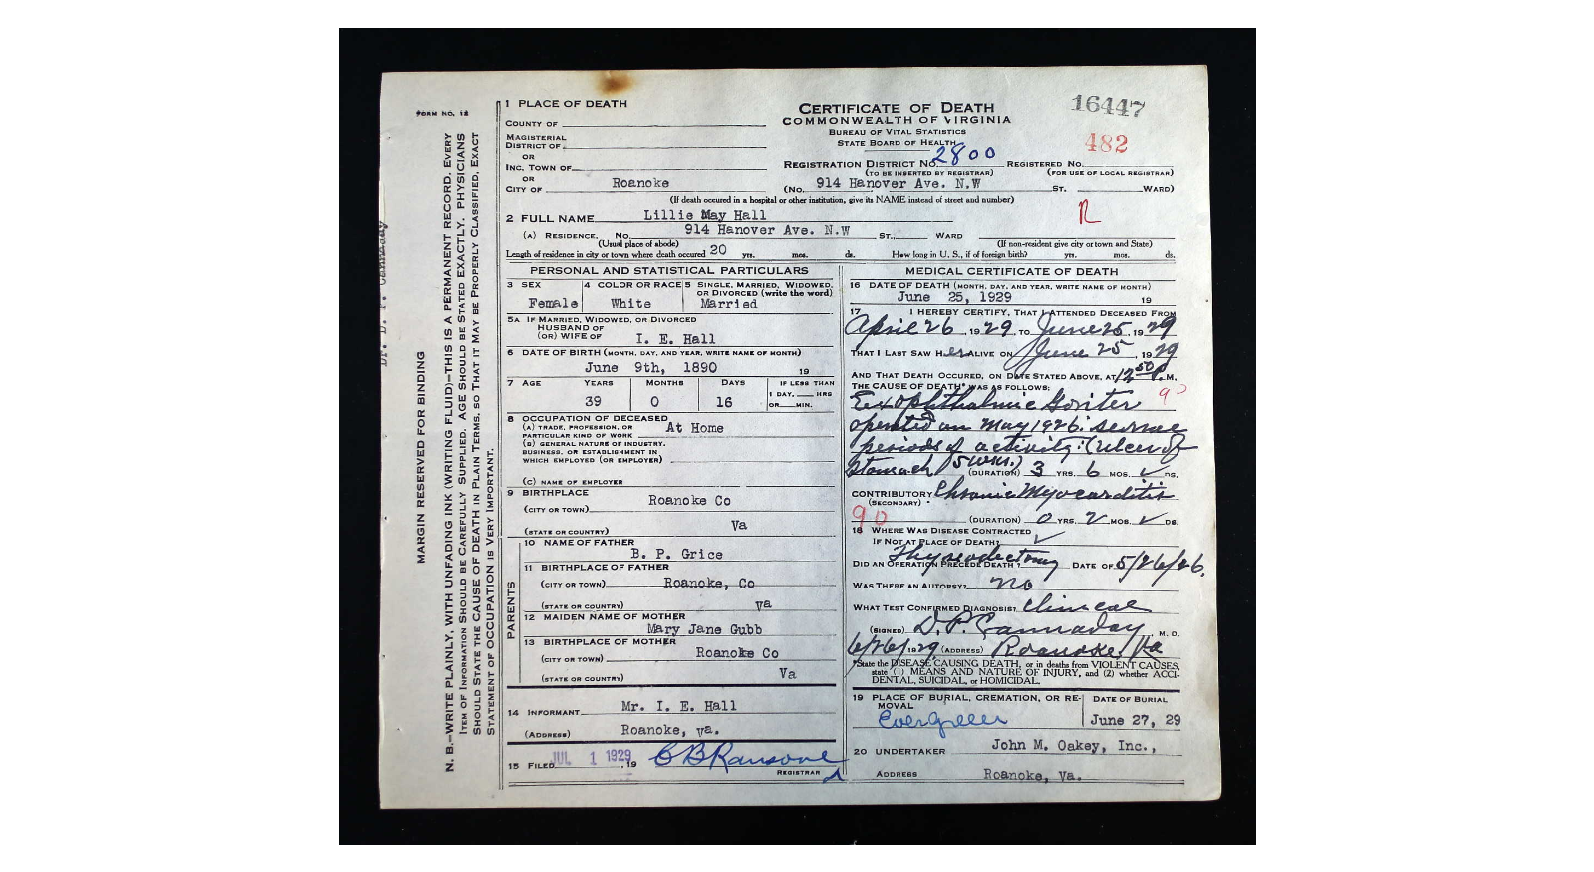 FORM NO. 12
MARGIN RESERVED FOR BINDING
N. B.—WRITE PLAINLY, WITH UNFADING INK (WRITING FLUID)—THIS IS A PERMANENT RECORD. EVERY
ITEM OF INFORMATION SHOULD BE CAREFULLY SUPPLIED. AGE SHOULD BE STATED EXACTLY. PHYSICIANS
SHOULD STATE THE CAUSE OF DEATH IN PLAIN TERMS, SO THAT IT MAY BE PROPERLY CLASSIFIED. EXACT
STATEMENT OF OCCUPATION IS VERY IMPORTANT.
CERTIFICATE OF DEATH
COMMONWEALTH OF VIRGINIA
BUREAU OF VITAL STATISTICS
STATE BOARD OF HEALTH
16447
482
1 PLACE OF DEATH
COUNTY OF
MAGISTERIAL DISTRICT OF
OR
INC. TOWN OF
OR
CITY OF Roanoke
REGISTRATION DISTRICT NO. 2800 REGISTERED NO.
(TO BE INSERTED BY REGISTRAR) (FOR USE OF LOCAL REGISTRAR)
(No. 914 Hanover Ave. N.W ST. WARD)
(If death occured in a hospital or other institution, give its NAME instead of street and number)
R
2 FULL NAME Lillie May Hall
(A) RESIDENCE, No. 914 Hanover Ave. N.W ST., WARD
(Usual place of abode) (If non-resident give city or town and State)
Length of residence in city or town where death occured 20 yrs. mos. ds. How long in U. S., if of foreign birth? yrs. mos. ds.
PERSONAL AND STATISTICAL PARTICULARS
3 SEX Female
4 COLOR OR RACE White
5 SINGLE, MARRIED, WIDOWED, OR DIVORCED (write the word) Married
5A IF MARRIED, WIDOWED, OR DIVORCED
HUSBAND OF
(OR) WIFE OF I. E. Hall
6 DATE OF BIRTH (MONTH, DAY, AND YEAR, WRITE NAME OF MONTH)
June 9th, 1890 19
7 AGE YEARS MONTHS DAYS IF LESS THAN
39 0 16 1 DAY, HRS
OR MIN.
8 OCCUPATION OF DECEASED
(A) TRADE, PROFESSION, OR PARTICULAR KIND OF WORK At Home
(B) GENERAL NATURE OF INDUSTRY,
BUSINESS, OR ESTABLISHMENT IN
WHICH EMPLOYED (OR EMPLOYER)
(C) NAME OF EMPLOYER
9 BIRTHPLACE
(CITY OR TOWN) Roanoke Co
(STATE OR COUNTRY) Va
PARENTS
10 NAME OF FATHER
B. P. Grice
11 BIRTHPLACE OF FATHER
(CITY OR TOWN) Roanoke, Co
(STATE OR COUNTRY) Va
12 MAIDEN NAME OF MOTHER
Mary Jane Gubb
13 BIRTHPLACE OF MOTHER
(CITY OR TOWN) Roanoke Co
(STATE OR COUNTRY) Va
14 INFORMANT Mr. I. E. Hall
(ADDRESS) Roanoke, Va.
15 FILED JUL 1 1929, 19 C B Ransone
REGISTRAR
MEDICAL CERTIFICATE OF DEATH
16 DATE OF DEATH (MONTH, DAY, AND YEAR, WRITE NAME OF MONTH)
June 25, 1929 19
17 I HEREBY CERTIFY, THAT I ATTENDED DECEASED FROM
April 26, 1929, TO June 25, 1929
THAT I LAST SAW HER ALIVE ON June 25, 1929
AND THAT DEATH OCCURED, ON DATE STATED ABOVE, AT 12 50 P.M.
THE CAUSE OF DEATH* WAS AS FOLLOWS:
Exophthalmic Goriter
operated on May 1926.
periods of activity. (ulcer of
Stomach 5 wks.) (DURATION) 3 YRS. 6 MOS. DS.
CONTRIBUTORY Chronic Myocarditis
(SECONDARY)
90 (DURATION) 0 YRS. 2 MOS. DS.
18 WHERE WAS DISEASE CONTRACTED
IF NOT AT PLACE OF DEATH?
Thyroidectomy
DID AN OPERATION PRECEDE DEATH? DATE OF 5/26/26.
WAS THERE AN AUTOPSY? no
WHAT TEST CONFIRMED DIAGNOSIS? Clinical
(SIGNED) D. P. Cannaday M. D.
6/26/1929 (ADDRESS) Roanoke, Va
*State the DISEASE CAUSING DEATH, or in deaths from VIOLENT CAUSES,
state ( ) MEANS AND NATURE OF INJURY, and (2) whether ACCI-
DENTAL, SUICIDAL, or HOMICIDAL.
19 PLACE OF BURIAL, CREMATION, OR RE-
MOVAL Evergreen
DATE OF BURIAL
June 27, 29
20 UNDERTAKER John M. Oakey, Inc.,
ADDRESS Roanoke, Va.